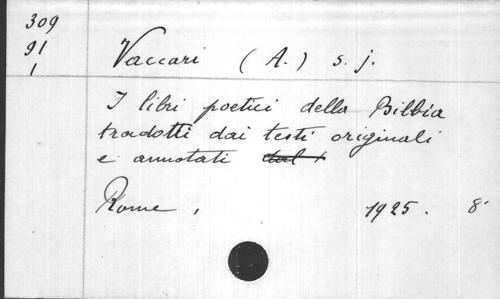 309
91
1
Vaccari (A.) s. j.
I libri poetici della Bibbia
tradotti dai testi originali
e annotati
Rome, 1925. 8°